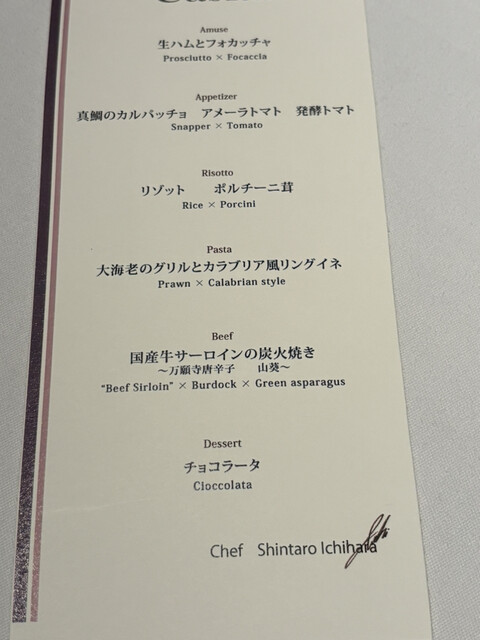 Amuse
生ハムとフォカッチャ
Prosciutto × Focaccia
Appetizer
真鯛のカルパッチョ　アメーラトマト　発酵トマト
Snapper × Tomato
Risotto
リゾット　　ポルチーニ茸
Rice × Porcini
Pasta
大海老のグリルとカラブリア風リングイネ
Prawn × Calabrian style
Beef
国産牛サーロインの炭火焼き
～万願寺唐辛子　　山葵～
"Beef Sirloin" × Burdock × Green asparagus
Dessert
チョコラータ
Cioccolata
Chef　Shintaro Ichihara